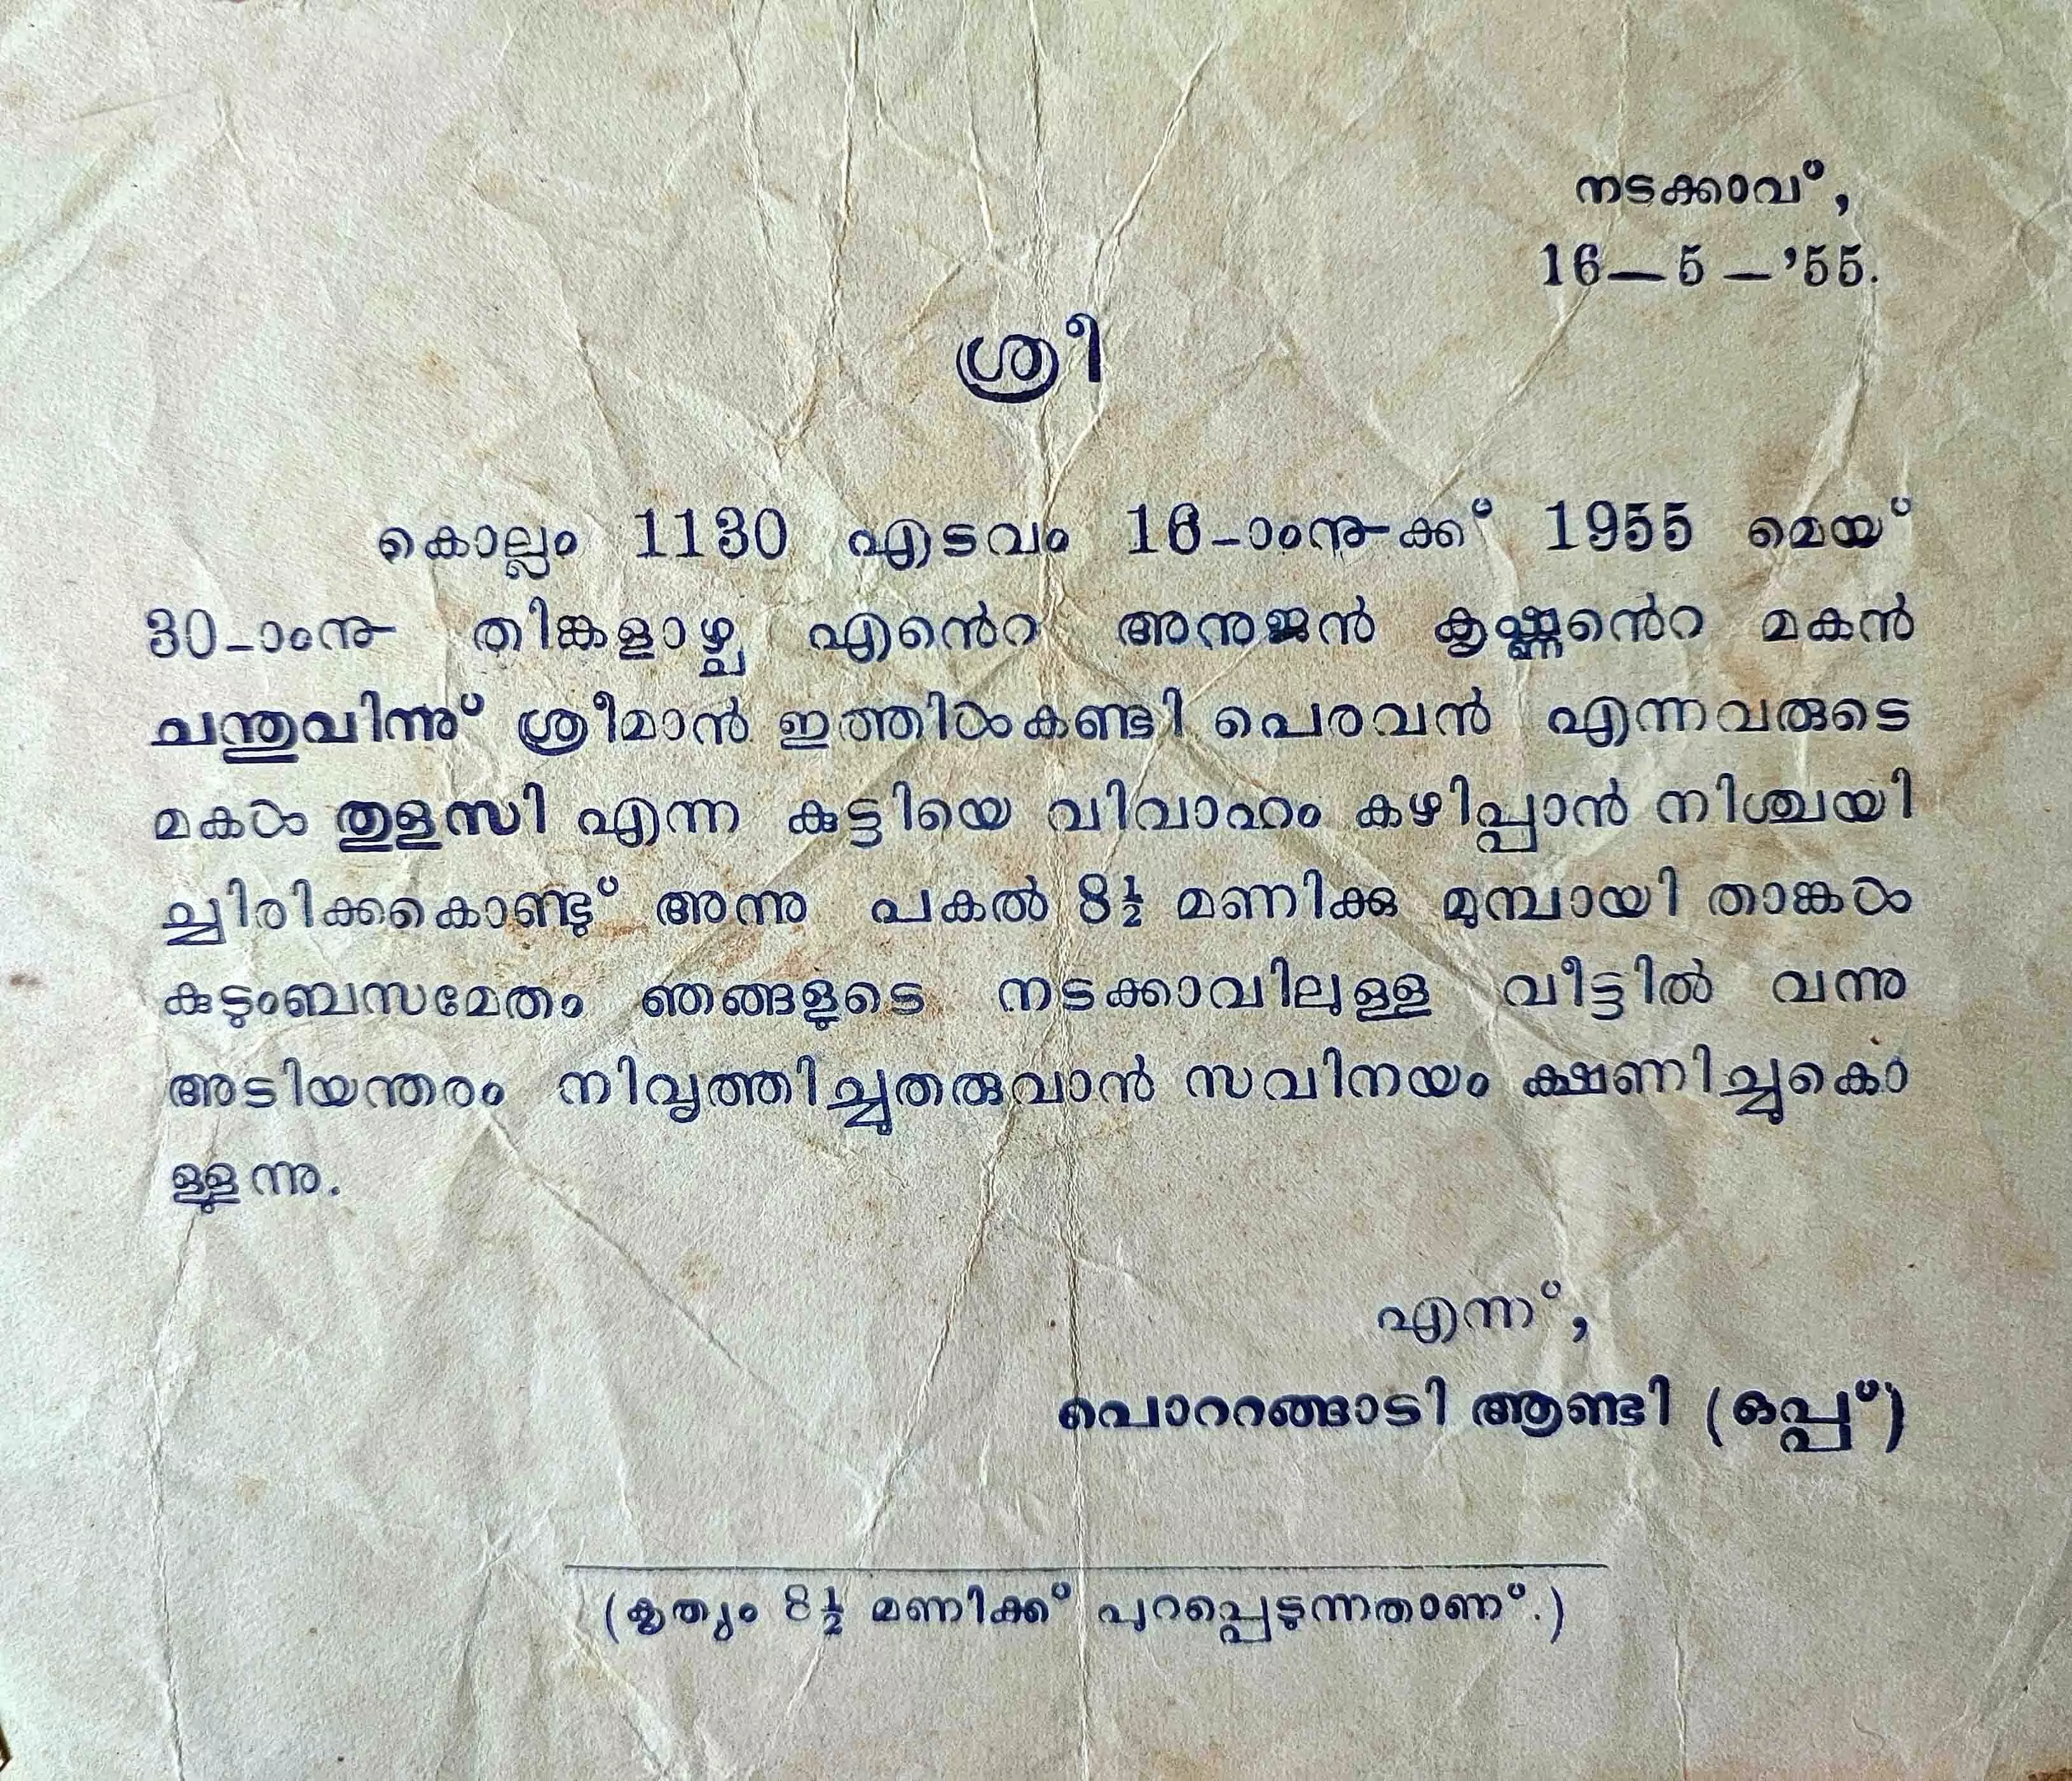 നടക്കാവ്,
16—5—'55.
ശ്രീ
കൊല്ലം 1130 എടവം 16-ാംനു-ക്ക് 1955 മെയ്
30-ാംനു തിങ്കളാഴ്ച എൻെറ അനുജൻ കൃഷ്ണൻെറ മകൻ
ചന്തുവിന്നു് ശ്രീമാൻ ഇത്തിൾകണ്ടി പെരവൻ എന്നവരുടെ
മകൾ തുളസി എന്ന കുട്ടിയെ വിവാഹം കഴിപ്പാൻ നിശ്ചയി
ച്ചിരിക്കകൊണ്ടു് അന്നു പകൽ 8½ മണിക്കു മുമ്പായി താങ്കൾ
കുടുംബസമേതം ഞങ്ങളുടെ നടക്കാവിലുള്ള വീട്ടിൽ വന്നു
അടിയന്തരം നിവൃത്തിച്ചുതരുവാൻ സവിനയം ക്ഷണിച്ചുകൊ
ള്ളുന്നു.
എന്ന്,
പൊററങ്ങാടി ആണ്ടി (ഒപ്പ്)
(കൃത്യം 8½ മണിക്ക് പുറപ്പെടുന്നതാണ്.)